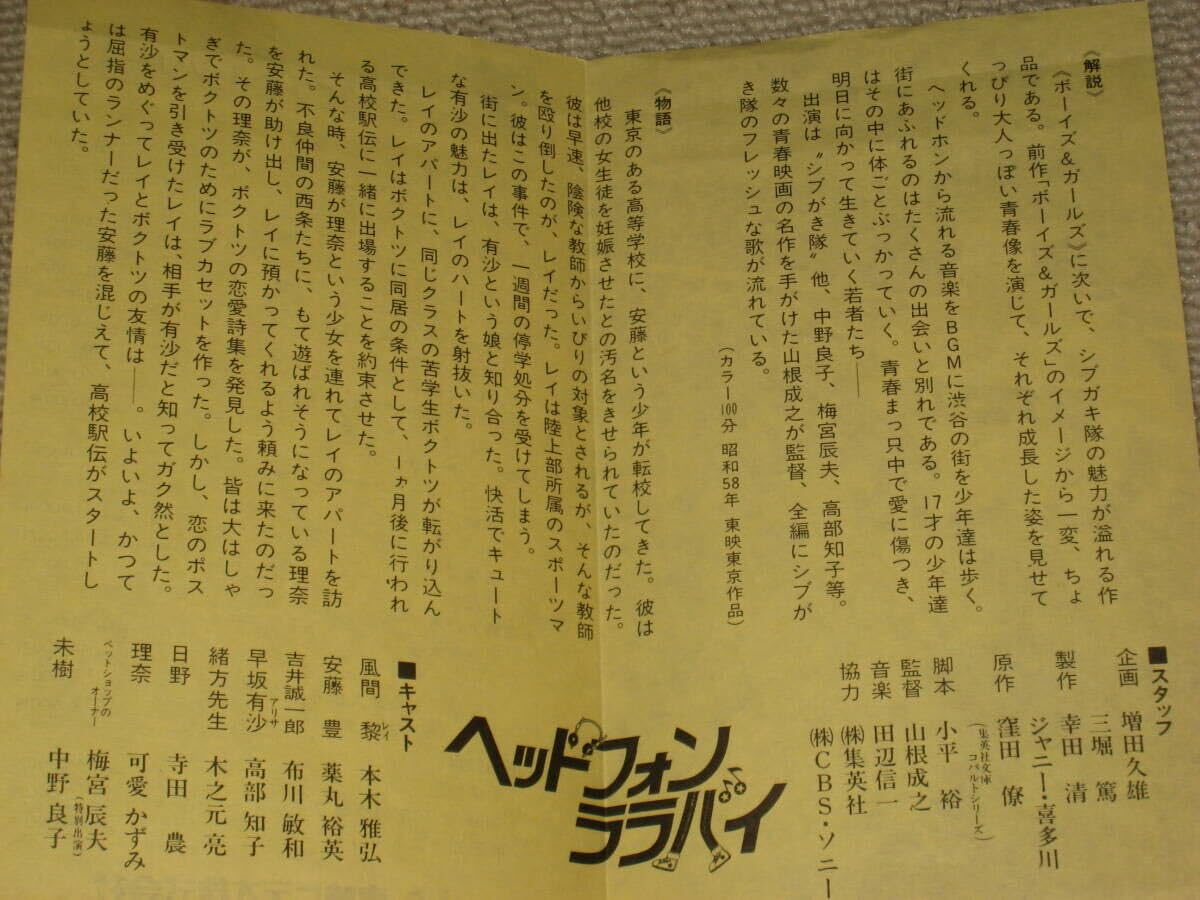 《解説》
《ボーイズ&ガールズ》に次いで、シブガキ隊の魅力が溢れる作
品である。前作「ボーイズ&ガールズ」のイメージから一変、ちょ
っぴり大人っぽい青春像を演じて、それぞれ成長した姿を見せて
くれる。
ヘッドホンから流れる音楽をBGMに渋谷の街を少年達は歩く。
街にあふれるのはたくさんの出会いと別れである。17才の少年達
はその中に体ごとぶっかっていく。青春まっ只中で愛に傷つき、
明日に向かって生きていく若者たち——
出演は〝シブがき隊〟他、中野良子、梅宮辰夫、高部知子等。
数々の青春映画の名作を手がけた山根成之が監督、全編にシブが
き隊のフレッシュな歌が流れている。
(カラー100分 昭和58年 東映東京作品)
《物語》
東京のある高等学校に、安藤という少年が転校してきた。彼は
他校の女生徒を妊娠させたとの汚名をきせられていたのだった。
彼は早速、陰険な教師からいびりの対象とされるが、そんな教師
を殴り倒したのが、レイだった。レイは陸上部所属のスポーツマ
ン。彼はこの事件で、一週間の停学処分を受けてしまう。
街に出たレイは、有沙という娘と知り合った。快活でキュート
な有沙の魅力は、レイのハートを射抜いた。
レイのアパートに、同じクラスの苦学生ボクトツが転がり込ん
できた。レイはボクトツに同居の条件として、一ヵ月後に行われ
る高校駅伝に一緒に出場することを約束させた。
そんな時、安藤が理奈という少女を連れてレイのアパートを訪
れた。不良仲間の西条たちに、もて遊ばれそうになっている理奈
を安藤が助け出し、レイに預かってくれるよう頼みに来たのだっ
た。その理奈が、ボクトツの恋愛詩集を発見した。皆は大はしゃ
ぎでボクトツのためにラブカセットを作った。しかし、恋のポス
トマンを引き受けたレイは、相手が有沙だと知ってガク然とした。
有沙をめぐってレイとボクトツの友情は——。いよいよ、かつて
は屈指のランナーだった安藤を混じえて、高校駅伝がスタートし
ようとしていた。
■スタッフ
企画 増田久雄
三堀 篤
製作 幸田 清
ジャニー・喜多川
原作 窪田 僚
(集英社文庫 コバルトシリーズ)
脚本 小平 裕
監督 山根成之
音楽 田辺信一
協力 ㈱集英社
㈱CBS・ソニー
ヘッドフォン
ララバイ
■キャスト
風間 黎 レイ 本木 雅弘
安藤 豊 薬丸 裕英
吉井誠一郎 布川 敏和
早坂有沙 アリサ 高部 知子
緒方先生 木之元 亮
日野 寺田 農
理奈 可愛 かずみ
ペットショップの オーナー 梅宮 辰夫 (特別出演)
未樹 中野 良子